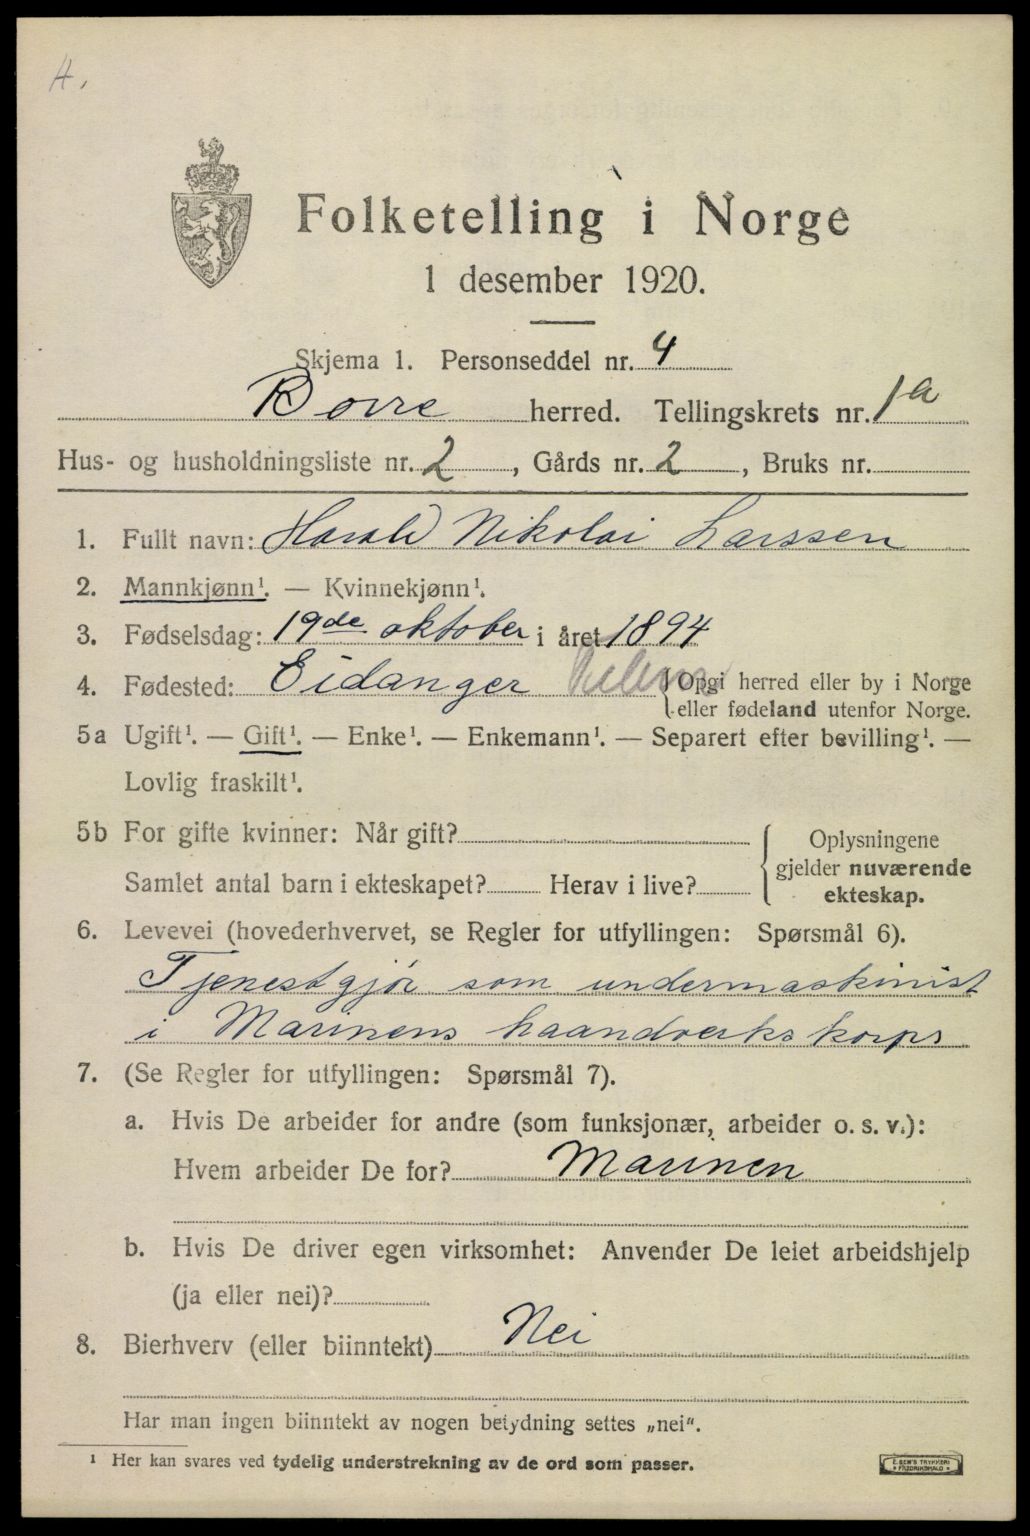 A.
Folketelling i Norge
1 desember 1920.
Skjema 1. Personseddel nr. 4
Borre herred. Tellingskrets nr. 1a
Hus- og husholdningsliste nr. 2, Gårds nr. 2, Bruks nr.
1. Fullt navn: Harald Nikolai Larssen
2. Mannkjønn¹. — Kvinnekjønn¹.
3. Fødselsdag: 19de oktober i året 1894
4. Fødested: Eidanger {Opgi herred eller by i Norge
eller fødeland utenfor Norge.
5a Ugift¹. — Gift¹. — Enke¹. — Enkemann¹. — Separert efter bevilling¹. —
Lovlig fraskilt¹.
5b For gifte kvinner: Når gift?
Samlet antal barn i ekteskapet? Herav i live?
Oplysningene
gjelder nuværende
ekteskap.
6. Levevei (hovederhvervet, se Regler for utfyllingen: Spørsmål 6).
Tjenestgjør som undermaskinist
i Marinens haandverkskorps
7. (Se Regler for utfyllingen: Spørsmål 7).
a. Hvis De arbeider for andre (som funksjonær, arbeider o. s. v.):
Hvem arbeider De for? Marinen
b. Hvis De driver egen virksomhet: Anvender De leiet arbeidshjelp
(ja eller nei)?
8. Bierhverv (eller biinntekt) Nei
Har man ingen biinntekt av nogen betydning settes „nei".
¹ Her kan svares ved tydelig understrekning av de ord som passer.
E. SEM'S TRYKKERI
FREDRIKSHALD